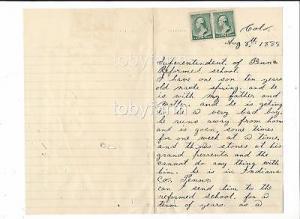 Colo.
Aug 8th 1889
Superentendent of Penna
Reformed school.
I have one son ten years
old next spring. and he
is with my father and
Mother. and he is geting
to be a very bad boy.
He runs away from home
and is gone, some times
for one week at a time,
and the stories at his
grand perrents and the cannot
do any thing with
him. he is in Indiana
Co. Penna
can I send him to the
reformed school. for a
term of years. as a